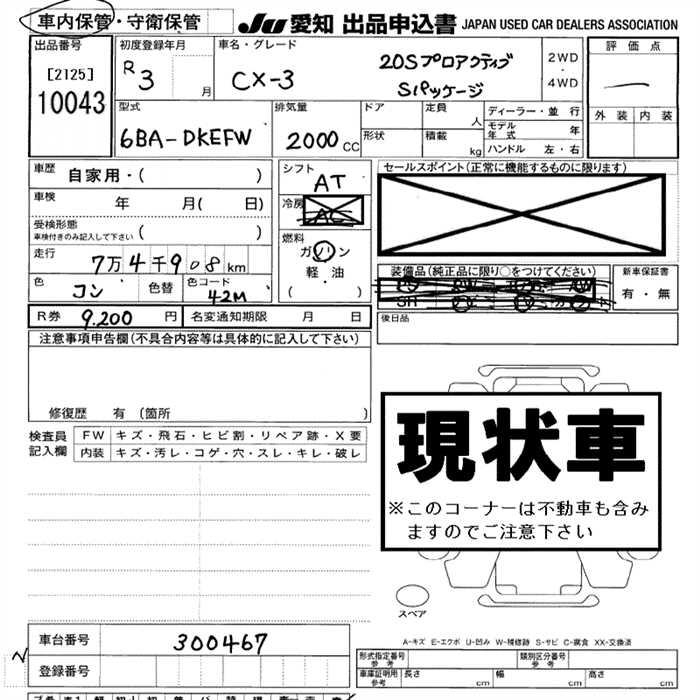 車内保管・守衛保管
JU 愛知 出品申込書 JAPAN USED CAR DEALERS ASSOCIATION
出品番号
[2125]
10043
初度登録年月
R3 月
車名・グレード
CX-3 20Sプロアクティブ
Sパッケージ
2WD
・
4WD
評価点
外装 内装
型式
6BA-DKEFW
排気量
2000 cc
ドア
形状
定員 人
積載 kg
ディーラー・並行
モデル年式 年
ハンドル 左・右
車歴 自家用・( )
車検 年 月( 日)
受検形態
車検付きのみ記入して下さい ( )
走行
7万4千908km
色 コン 色替 色コード 42M
シフト
AT
冷房
AC
燃料
ガソリン
軽・油
( ・ )
セールスポイント(正常に機能するものに限ります)
装備品(純正品に限り○をつけてください)
新車保証書
有・無
後日品
R券 9.200 円 名変通知期限 月 日
注意事項申告欄(不具合内容等は具体的に記入して下さい)
修復歴 有 (箇所 )
検査員
記入欄
FW キズ・飛石・ヒビ割・リペア跡・X要
内装 キズ・汚レ・コゲ・穴・スレ・キレ・破レ
現状車
※このコーナーは不動車も含み
ますのでご注意下さい
スペア
A-キズ E-エクボ U-凹み W-補修跡 S-サビ C-腐食 XX-交換済
車台番号 300467
登録番号
形式指定番号
参考
類別区分番号
参考
車庫証明用
参考
長さ cm 幅 cm 高さ cm